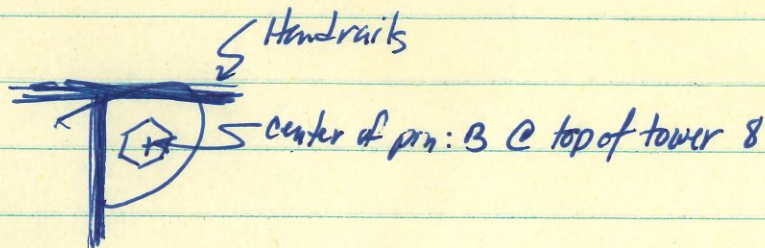 Handrails
center of pin: B @ top of tower 8